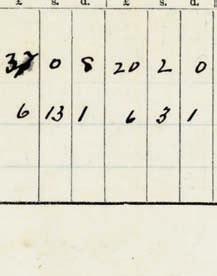 £ s. d. £ s. d.
0 8 20 2 0
6 13 1 6 3 1